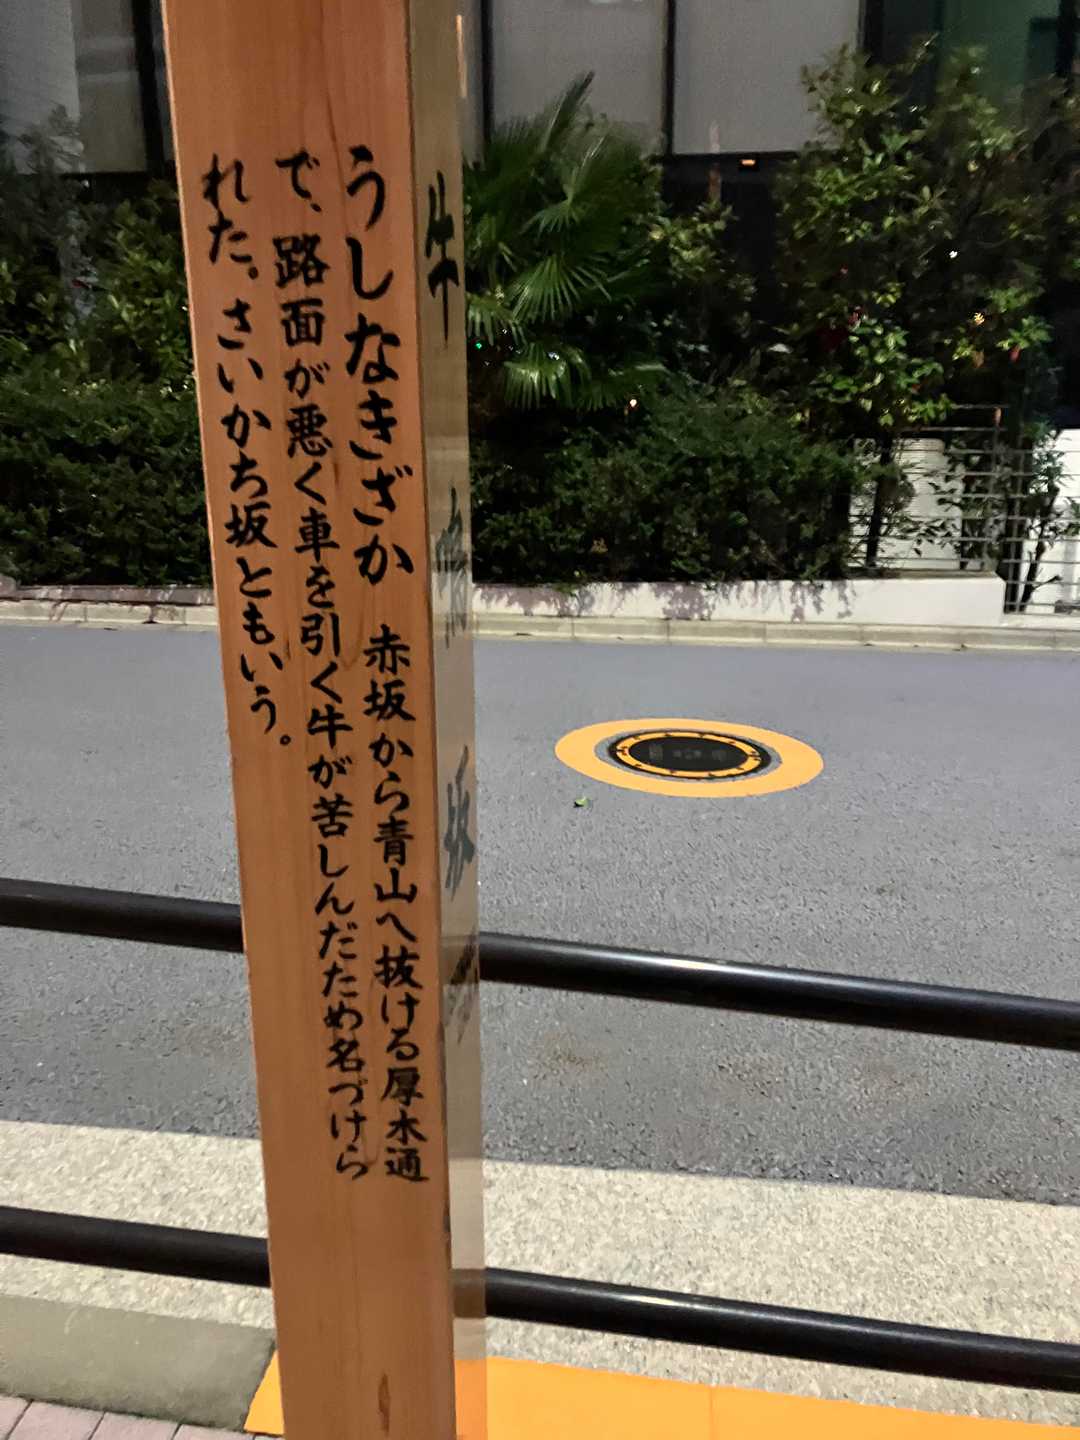 うしなきざか 赤坂から青山へ抜ける厚木通
で、路面が悪く車を引く牛が苦しんだため名づけら
れた。さいかち坂ともいう。
牛鳴坂